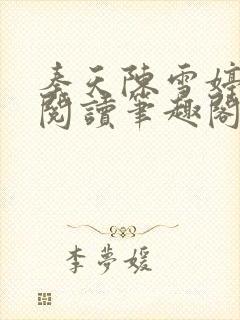 秦天陈雪婷
閱讀筆趣閣
李夢媛